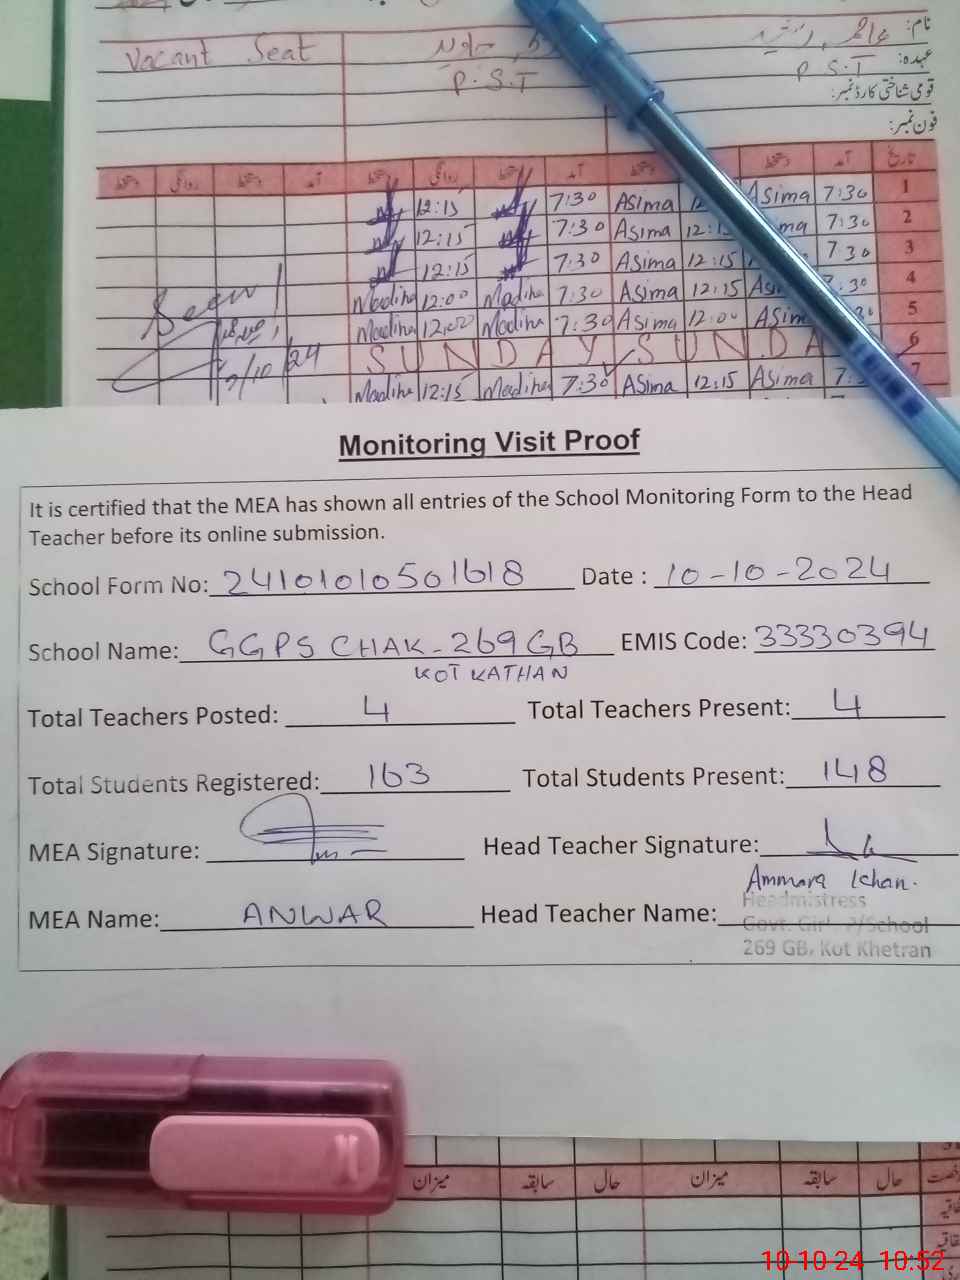 نام:
Vacant Seat
عہدہ:
P.S.T P.S.T
قومی شناختی کارڈ نمبر:
فون نمبر:
تاریخ آمد دستخط دستخط آمد دستخط روانگی دستخط آمد دستخط روانگی دستخط
12:15 7:30 Asima Asima 7:30 1
12:15 7:30 Asima 7:30 2
12:15 7:30 Asima 12:15 7:30 3
Madiha 12:00 Madiha 7:30 Asima 12:15 4
Madiha 12:00 Madiha 7:30 Asima 12:00 Asima 5
SUNDAY SUNDA 6
Madiha 12:15 Madiha 7:30 Asima 12:15 Asima 7
Seen
Monitoring Visit Proof
It is certified that the MEA has shown all entries of the School Monitoring Form to the Head
Teacher before its online submission.
School Form No: 24101010501618 Date : 10-10-2024
School Name: GGPS CHAK-269 GB EMIS Code: 33330394
KOT KATHAN
Total Teachers Posted: 4 Total Teachers Present: 4
Total Students Registered: 163 Total Students Present: 148
MEA Signature: Head Teacher Signature:
Ammara Khan.
MEA Name: ANWAR Head Teacher Name:
Headmistress
Govt. Girl P/School
269 GB, Kot Khetran
حال سابقہ میزان حال سابقہ میزان
10 10 24 10:52